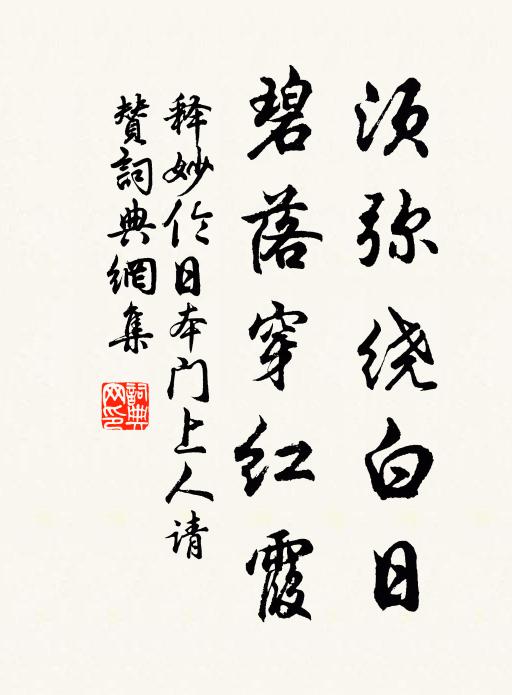 须弥绕白日
碧落穿红霞
释妙伦日本门上人请
赞詞典網集
詞典网印